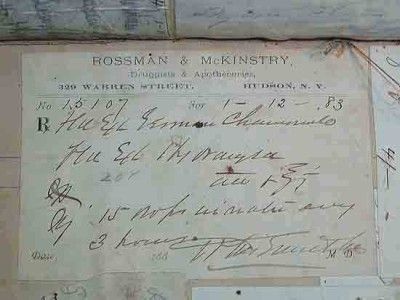 ROSSMAN & McKINSTRY,
Druggists & Apothecaries,
329 WARREN STREET, HUDSON, N. Y.
No 15107 For 1-12-83
R Fld Ext German Chamomile
Fld Ext Hydrangea
aa ℥
15 drops in water every
3 hours
Date 188 M D.